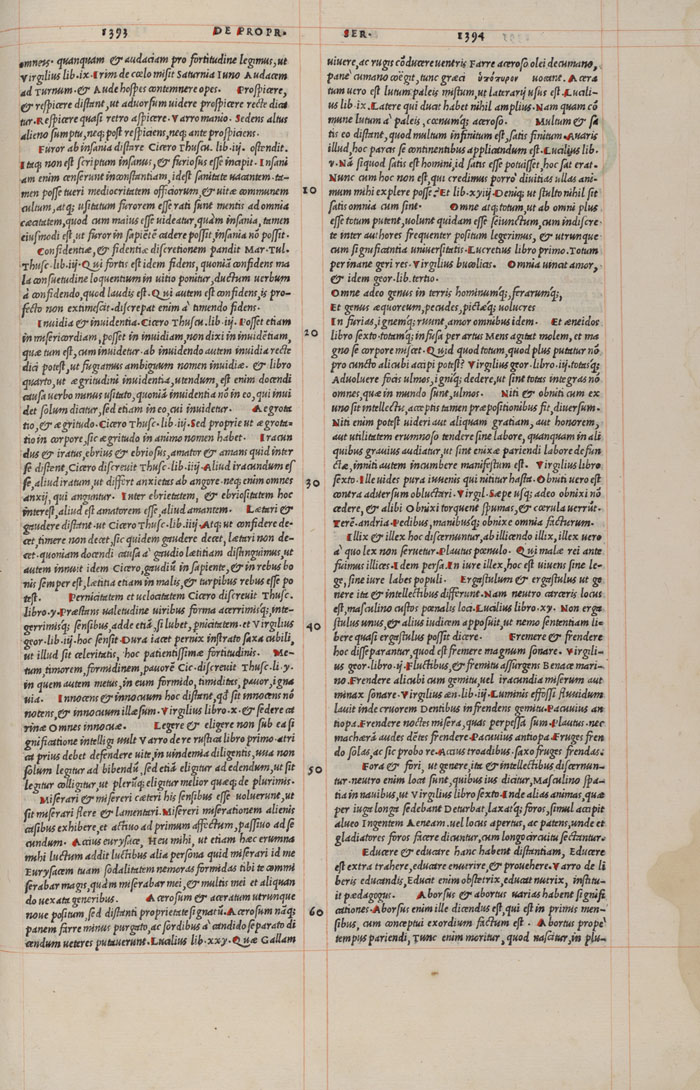 1393 DE PROPR.
omneis. quanquam & audaciam pro fortitudine legimus, ut
Virgilius lib.ix. Irim de cœlo misit Saturnia Iuno Audacem
ad Turnum. & Aude hospes contemnere opes. Prospicere,
& respicere distant, ut aduorsum uidere prospicere recte dica
tur. Respicere quasi retro aspicere. Varro manio. Sedens altus
alieno sumptu, neq; post respiciens, neq; ante prospiciens.
Furor ab insania distare Cicero Thusc. lib.iij. ostendit.
Itaq; non est scriptum insanus, & furiosus esse incipit. Insani
am enim censerunt inconstantiam, id est sanitate uacantem. ta-
men posse tueri mediocritatem officiorum, & uitæ communem
cultum, atq; usitatum furorem esse rati sunt mentis ad omnia
cæcitatem, quod cum maius esse uideatur, quàm insania, tamen
eiusmodi est, ut furor in sapiētē cadere possit, insania nō possit.
Confidentiæ, & fidentiæ discretionem pandit Mar. Tul.
Thusc. lib.iij. Qui fortis est idem fidens, quoniā confidens ma
la consuetudine loquentium in uitio ponitur, ductum uerbum
à confidendo, quod laudis est. Qui autem est confidens, is pro-
fecto non extimescit. discrepat enim à timendo fidens.
Inuidia & inuidentia. Cicero Thuscu. lib. iij. Posset etiam
in misericordiam, posset in inuidiam, non dixi in inuidētiam,
quæ tum est, cum inuidetur. ab inuidendo autem inuidia recte
dici potest, ut fugiamus ambiguum nomen inuidiæ. & libro
quarto, ut ægritudini inuidentia, utendum, est enim docendi
causa uerbo minus usitato, quoniā inuidentia nō in eo, qui inui
det solum dicitur, sed etiam in eo, cui inuidetur. Aegrota
tio, & ægritudo. Cicero Thusc. lib.iij. Sed proprie ut ægrota=
tio in corpore, sic ægritudo in animo nomen habet. Iracun
dus & iratus, ebrius & ebriosus, amator & amans quid inter
se distent, Cicero discreuit Thusc. lib.iiij. Aliud iracundum es
se, aliud iratum, ut differt anxietas ab angore. neq; enim omnes
anxij, qui anguntur. Inter ebrietatem, & ebriositatem hoc
interest, aliud est amatorem esse, aliud amantem. Lætari &
gaudere distant. ut Cicero Thusc. lib.iiij. Atq; ut confidere de-
cet, timere non decet, sic quidem gaudere decet, lætari non de-
cet. quoniam docendi causa à gaudio lætitiam distinguimus, ut
autem innuit idem Cicero, gaudiū in sapiente, & in rebus bo
nis semper est, lætitia etiam in malis, & turpibus rebus esse po
test. Pernicitatem et uelocitatem Cicero discreuit Thusc.
libro.y. Præstans ualetudine uiribus forma acerrimisq; inte-
gerrimisq; sensibus, adde etiā, si lubet, pnicitatem. et Virgilius
geor. lib.iij. hoc sensit. Dura iacet pernix instrato saxa cubili,
ut illud sit celeritatis, hoc patientissimæ fortitudinis. Me-
tum, timorem, formidinem, pauorē Cic. discreuit Thusc. li.y.
in quem autem metus, in eum formido, timiditas, pauor, igna
uia. Innocens & innocuum hoc distant, qđ sit innocens nō
notens, & innocuum illæsum. Virgilius libro.x. & sedere ca
rinæ Omnes innocuæ. Legere & eligere non sub ea si
gnificatione intelligi uult Varro de re rustica libro primo. atri
ca prius debet defendere uite, in uindemia diligentis, uua non
solum legitur ad bibendū, sed etiā eligitur ad edendum, ut sit
legitur colligitur, ut plerūq; eligitur melior quæq; de plurimis.
Miserari & misereri cæteri his sensibus esse uoluerunt, ut
sit miserari flere & lamentari. Misereri miserationem alienis
casibus exhibere, et actiuo ad primum affectum, passiuo ad se
cundum. Accius eurysace, Heu mihi, ut etiam hæc erumna
mihi luctum addit luctibus alia persona quid miserari id me
Eurysacem tuam sodalitatem nemoras formidas tibi te ammi
serabar magis, quàm miserabar mei, & multis mei et aliquan
do uexata generibus. Acerosum & aceratum utrunque
noue positum, sed distanti proprietate signatū. Acerosum nāq;
panem farre minus purgato, ac sordibus à candido separato di
cendum ueteres putauerunt. Lucilius lib.xxy. Quæ Gallam
10
20
30
40
50
60
SER. 1394
uiuere, ac rugis cōducere uentris Farre aceroso olei decumano,
pane cumano coëgit, tunc græci ὑπόπυρον uocant. Acera
tum uero est lutum paleis mistum, ut laterarij usus est. Lucili-
us lib.ix. Latere qui ducit habet nihil amplius. Nam quam cō
mune lutum à paleis, cœnumq; aceroso. Multum & sa
tis eo distant, quod multum infinitum est, satis finitum. Auaris
illud, hoc parcis se continentibus applicandum est. Lucilius lib.
v. Nā siquod satis est homini, id satis esse potuisset, hoc sat erat.
Nunc cum hoc non est, qui credimus porro diuitias ullas ani-
mum mihi explere posse? Et lib.xyiij. Deniq; ut stulto nihil sit
satis omnia cum sint. Omne atq; totum, ut ab omni plus
esse totum putent, uolunt quidam esse seiunctum, cum indiscre
te inter authores frequenter positum legerimus, & utrunque
cum significantia uniuersitatis. Lucretius libro primo. Totum
per inane geri res. Virgilius bucolicis. Omnia uincit amor,
& idem geor. lib. tertio.
Omne adeo genus in terris hominumq;, ferarumq;,
Et genus æquoreum, pecudes, pictæq; uolucres
In furias, ignemq; ruunt, amor omnibus idem. Et æneidos
libro sexto. totamq; infusa per artus Mens agitat molem, et ma
gno se corpore miscet. Quid quod totum, quod plus putatur nō
pro cuncto alicubi accipi potest? Virgilius geor. libro.iij. totasq;
Aduoluere focis ulmos, igniq; dedere, ut sint totas integras nō
omnes, quæ in mundo sunt, ulmos. Niti & obniti cum ex
uno sit intellectus, acceptis tamen præpositionibus fit, diuersum.
Niti enim potest uideri aut aliquam gratiam, aut honorem,
aut utilitatem erumnoso tendere sine labore, quanquam in ali
quibus grauius audiatur, ut sint enixæ pariendi labore defun
ctæ, inniti autem incumbere manifestum est. Virgilius libro
sexto. Ille uides pura iuuenis qui nititur hasta. Obniti uero est
contra aduersum obluctari. Virgil. Sæpe usq; adeo obnixi nō
cædere, & alibi Obnixi torquent spumas, & cœrula uerrūt.
Terē. andria. Pedibus, manibusq; obnixe omnia facturum.
Illix & illex hoc discernuntur, ab illicendo illix, illex uero
à quo lex non seruetur. Plautus pœnulo. Qui malæ rei ante
fuimus illices. Idem persa. In iure illex, hoc est uiuens sine le-
ge, sine iure labes populi. Ergastulum & ergastulus ut ge
nere ita & intellectibus differunt. Nam neutro carceris locus
est, masculino custos pœnalis loci. Lucilius libro.xy. Non erga
stulus unus, & alius iudicem apposuit, ut nemo sententiam li-
bere quasi ergastulus possit dicere. Fremere & frendere
hoc disseparantur, quod est fremere magnum sonare. Virgili-
us geor. libro.ij. Fluctibus, & fremitu assurgens Benace mari-
no. Frendere alicubi cum gemitu, uel iracundia miserum aut
minax sonare. Virgilius æn. lib.iij. Luminis effossi fluuidum
lauit inde cruorem Dentibus infrendens gemitu. Pacuuius an
tiopa. Frendere noctes misera, quas perpessa sum. Plautus. nec
machærā audes dētes frendere. Pacuuius antiopa. Fruges fren
do solas, ac sic probo re. Accius troadibus. Saxo fruges frendas.
Fora & fori, ut genere, ita & intellectibus discernun-
tur. neutro enim loca sunt, quibus ius dicitur, Masculino spa-
tia in nauibus, ut Virgilius libro sexto. Inde alias animas, quæ
per iuga longa sedebant Deturbat, laxatq; foros, simul accipit
alueo Ingentem Aeneam. uel locus apertus, ac patens, unde et
gladiatores foros facere dicuntur, cum longo circuitu sectantur.
Educere & educare hanc habent distantiam, Educere
est extra trahere, educare enutrire, & prouehere. Varro de li
beris educandis, Educit enim obstetrix, educat nutrix, institu-
it pædagogus. Aborsus & abortus uarias habent signifi
cationes. Aborsus enim ille dicendus est, qui est in primis men-
sibus, cum conceptui exordium factum est. Abortus prope
tempus pariendi, Tunc enim moritur, quod nascitur, in plu-